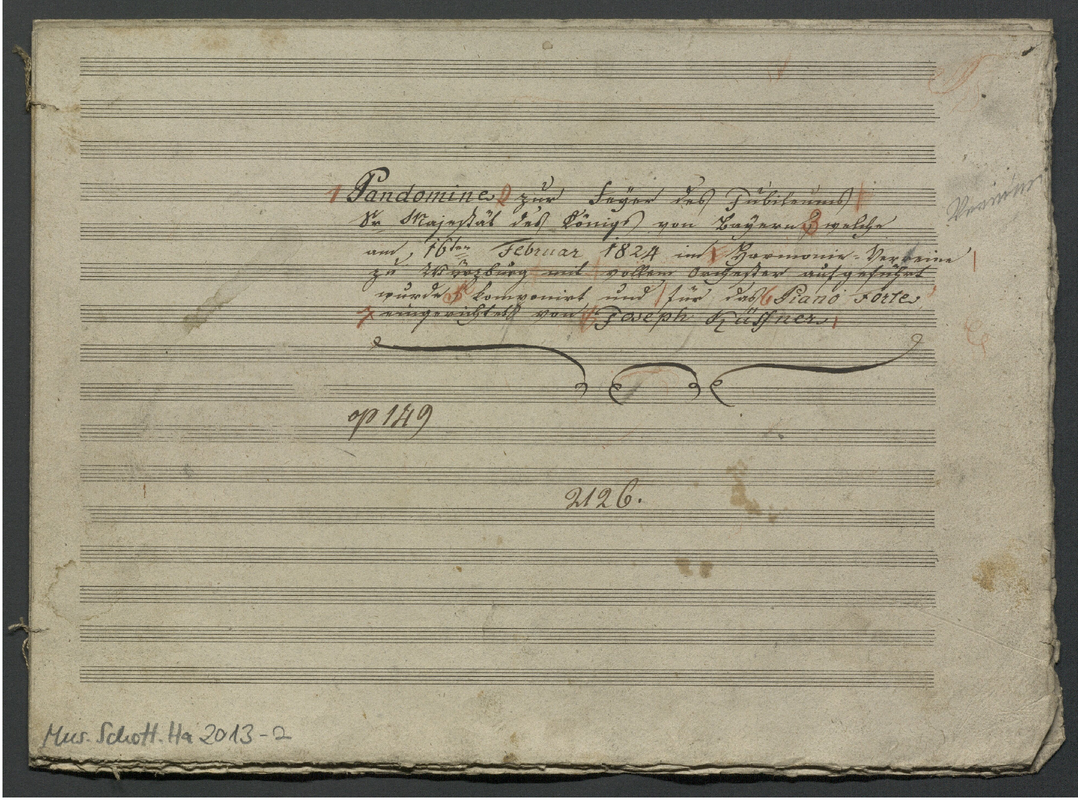 Pandomine zur Feÿer des Jubileums
Sr Majestät des Königs von Bayern welche
am 16ten Februar 1824 im Harmonie-Vereine
zu Würzburg mit vollem Orchester aufgeführt
wurde Componirt und für das Piano Forte
eingerichtet von Joseph Küffner
op 149
2126.
Mus. Schott. Ha 2013-2